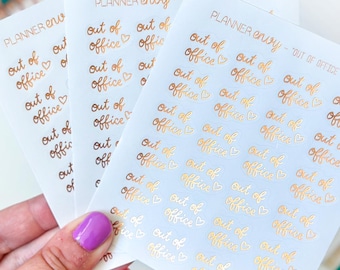 PLANNER envy
out of
office♡
out of
office♡
out of
office♡
out of
office♡
PLANNER envy
out of
office♡
out of
office♡
out of
office♡
out of
office♡
PLANNER envy - "OUT OF OFFICE
out of out of out of out of
office♡ office♡ office♡ office♡
out of out of out of out of
office♡ office♡ office♡ office♡
out of out of out of out of
office♡ office♡ office♡ office♡
out of out of out of out of
office♡ office♡ office♡ office♡
out of out of out of out of
office♡ office♡ office♡ office♡